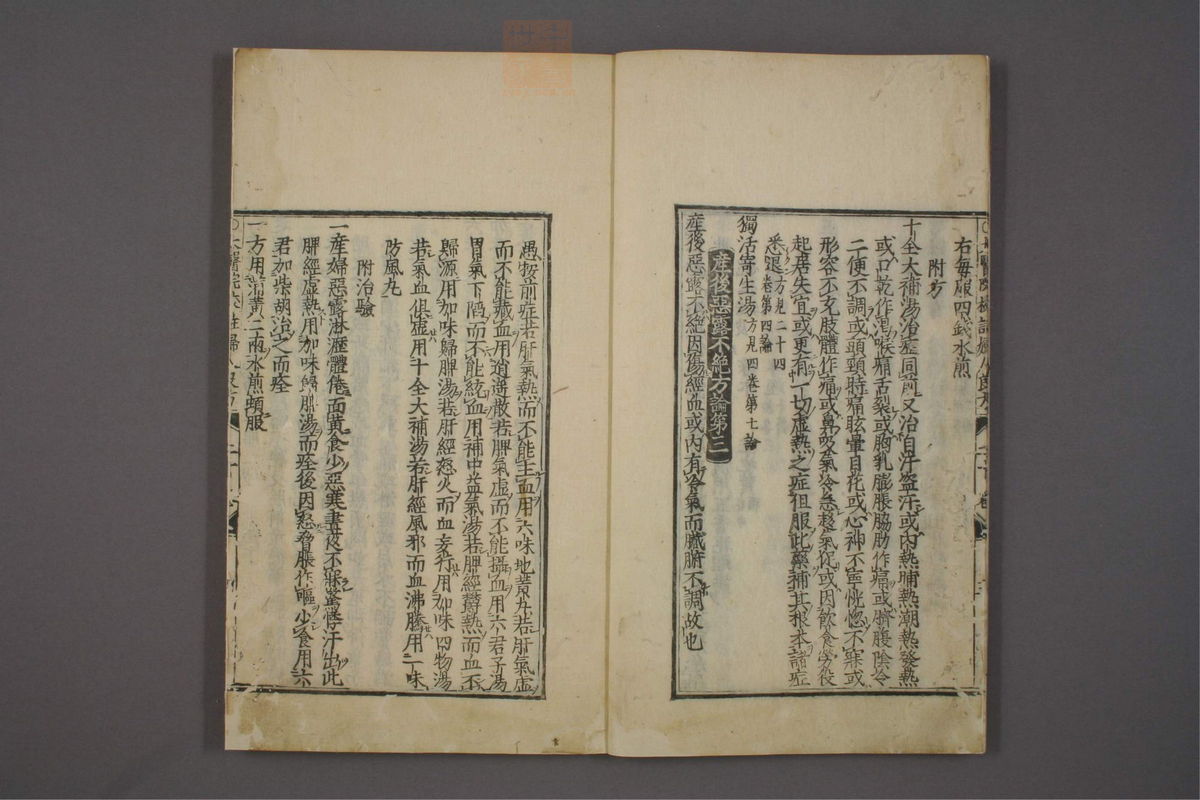 右每服四錢水煎
附方
十全大補湯治症同前又治自汗盜汗或內熱晡熱潮熱發熱
或口乾作渴喉痛舌裂或胸乳膨脹脇肋作痛或臍腹陰冷
二便不調或頭頸時痛眩暈目花或心神不寧恍惚不寐或
形容不充肢體作痛或鼻吸氣冷急趨氣促或因飲食勞役
起居失宜或更有一切虛熱之症但服此藥補其根本諸症
悉退方見二十四卷第四論
獨活寄生湯方見四卷第七論
產後惡露不絕方論第三
產後惡露不絕因傷經血或內有冷氣而臟腑不調故也
愚按前症若肝氣熱而不能主血用六味地黃丸若肝氣虛
而不能藏血用逍遙散若脾氣虛而不能攝血用六君子湯
胃氣下陷而不能統血用補中益氣湯若脾經鬱熱而血不
歸源用加味歸脾湯若肝經怒火而血妄行用加味四物湯
若氣血俱虛用十全大補湯若肝經風邪而血沸騰用一味
防風丸
附治驗
一產婦惡露淋瀝體倦面黃食少惡寒晝夜不寐驚悸汗出此
脾經虛熱用加味歸脾湯而痊後因怒脅脹作嘔少食用六
君加柴胡治之而痊
一方用蒲黃二兩水煎頓服